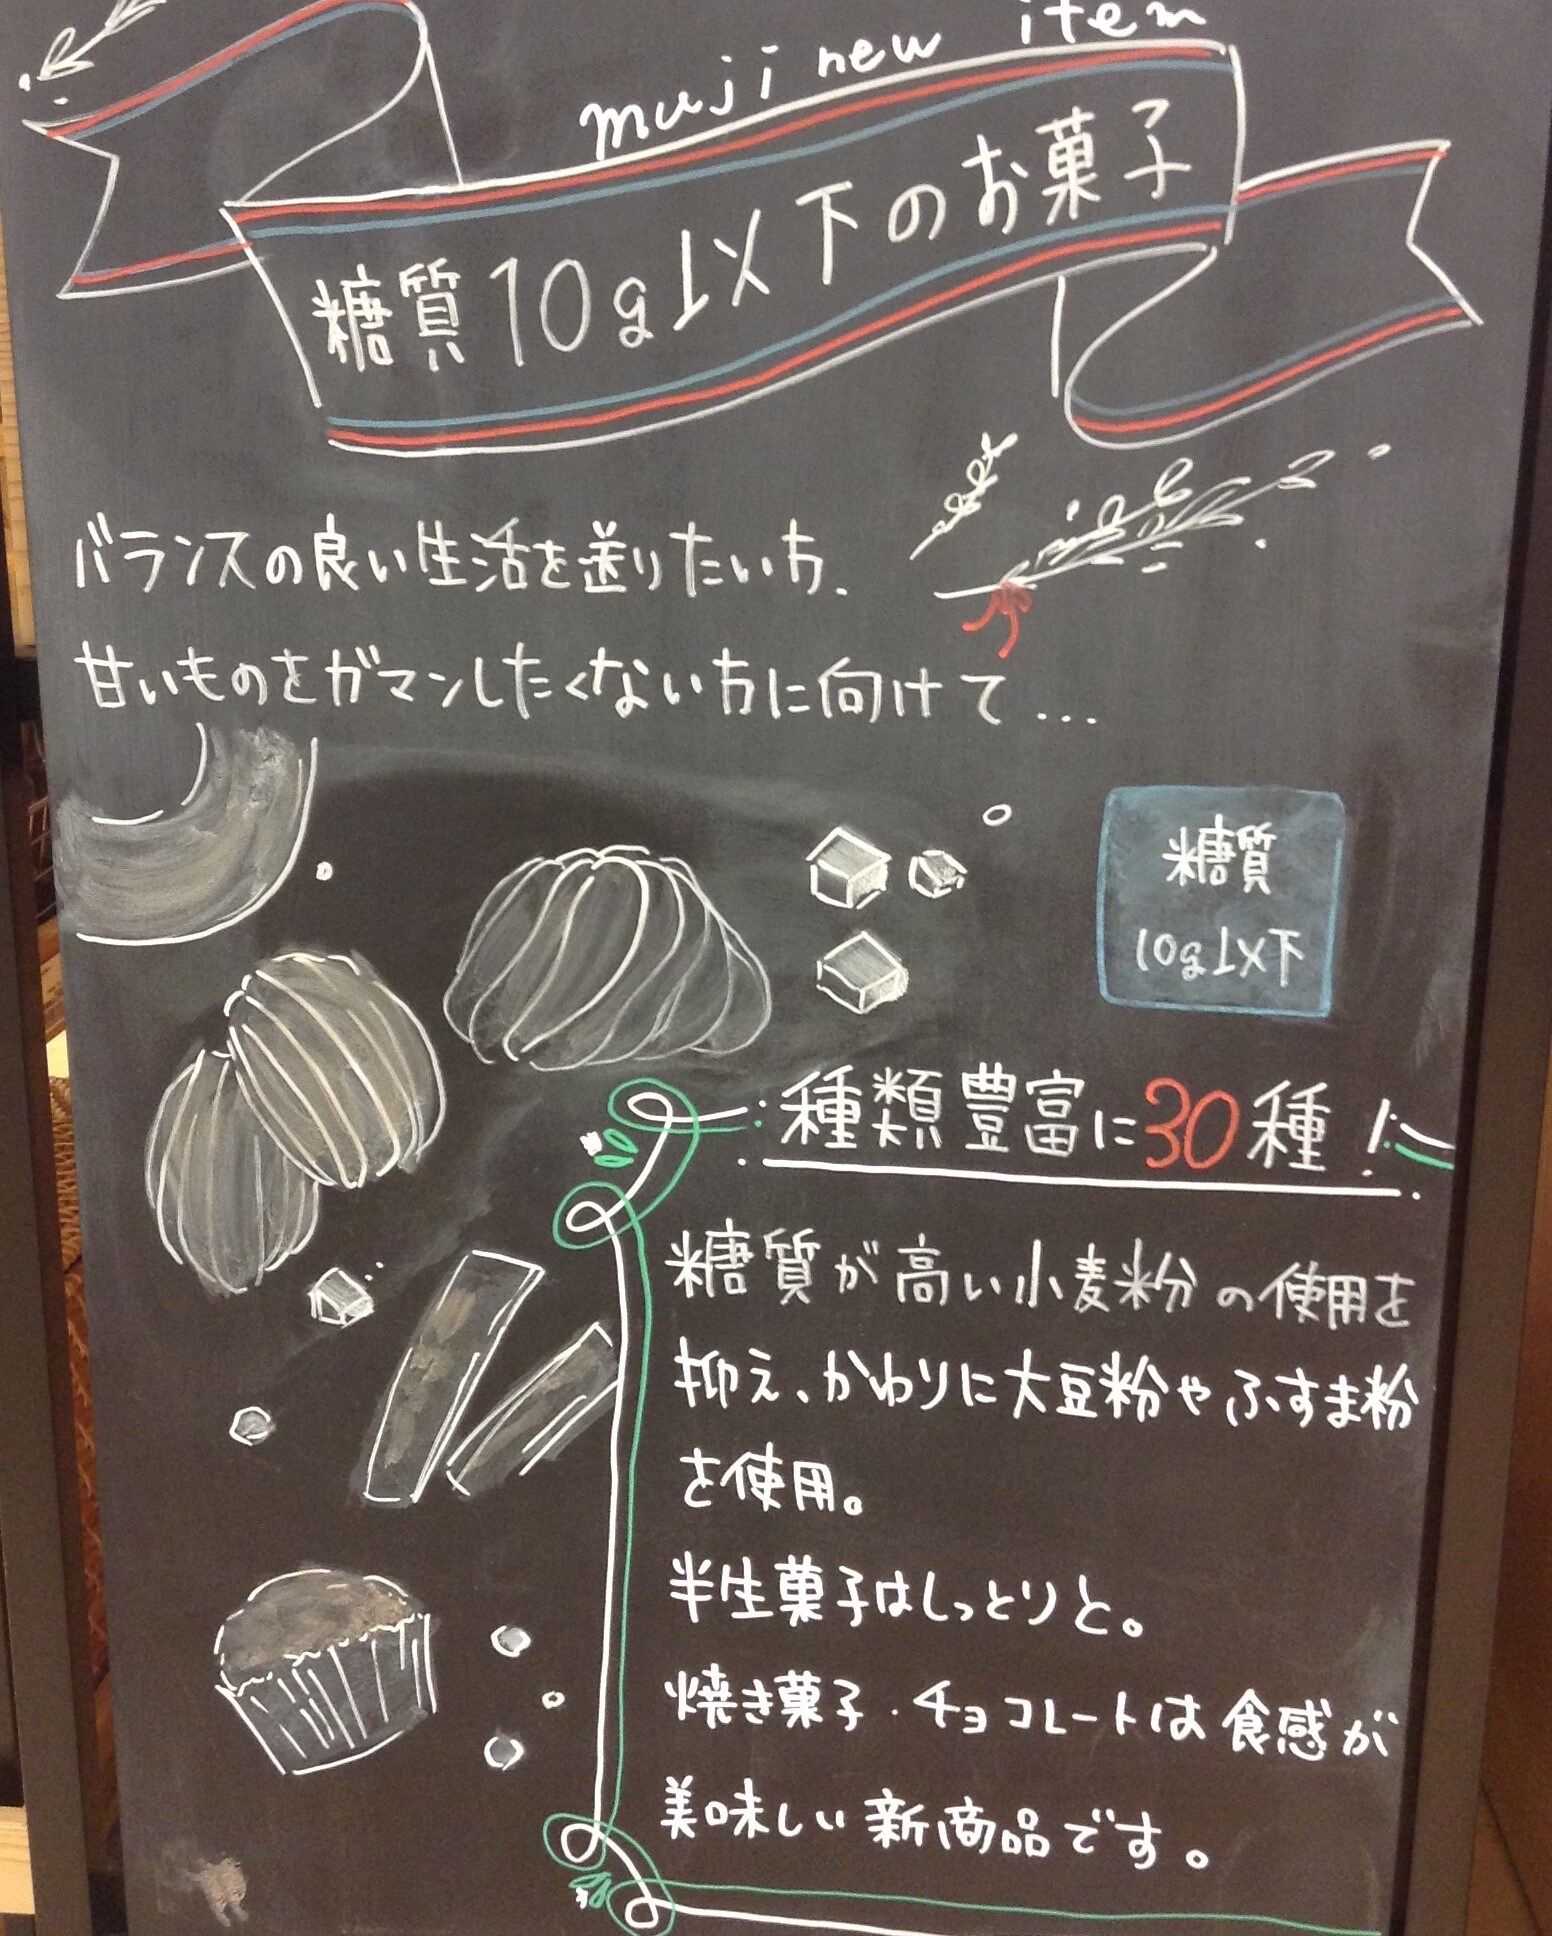 muji new item
糖質10g以下のお菓子
バランスの良い生活を送りたい方、
甘いものをガマンしたくない方に向けて...
糖質
10g以下
種類豊富に30種!
糖質が高い小麦粉の使用を
抑え、かわりに大豆粉やふすま粉
を使用。
半生菓子はしっとりと。
焼き菓子・チョコレートは食感が
美味しい新商品です。